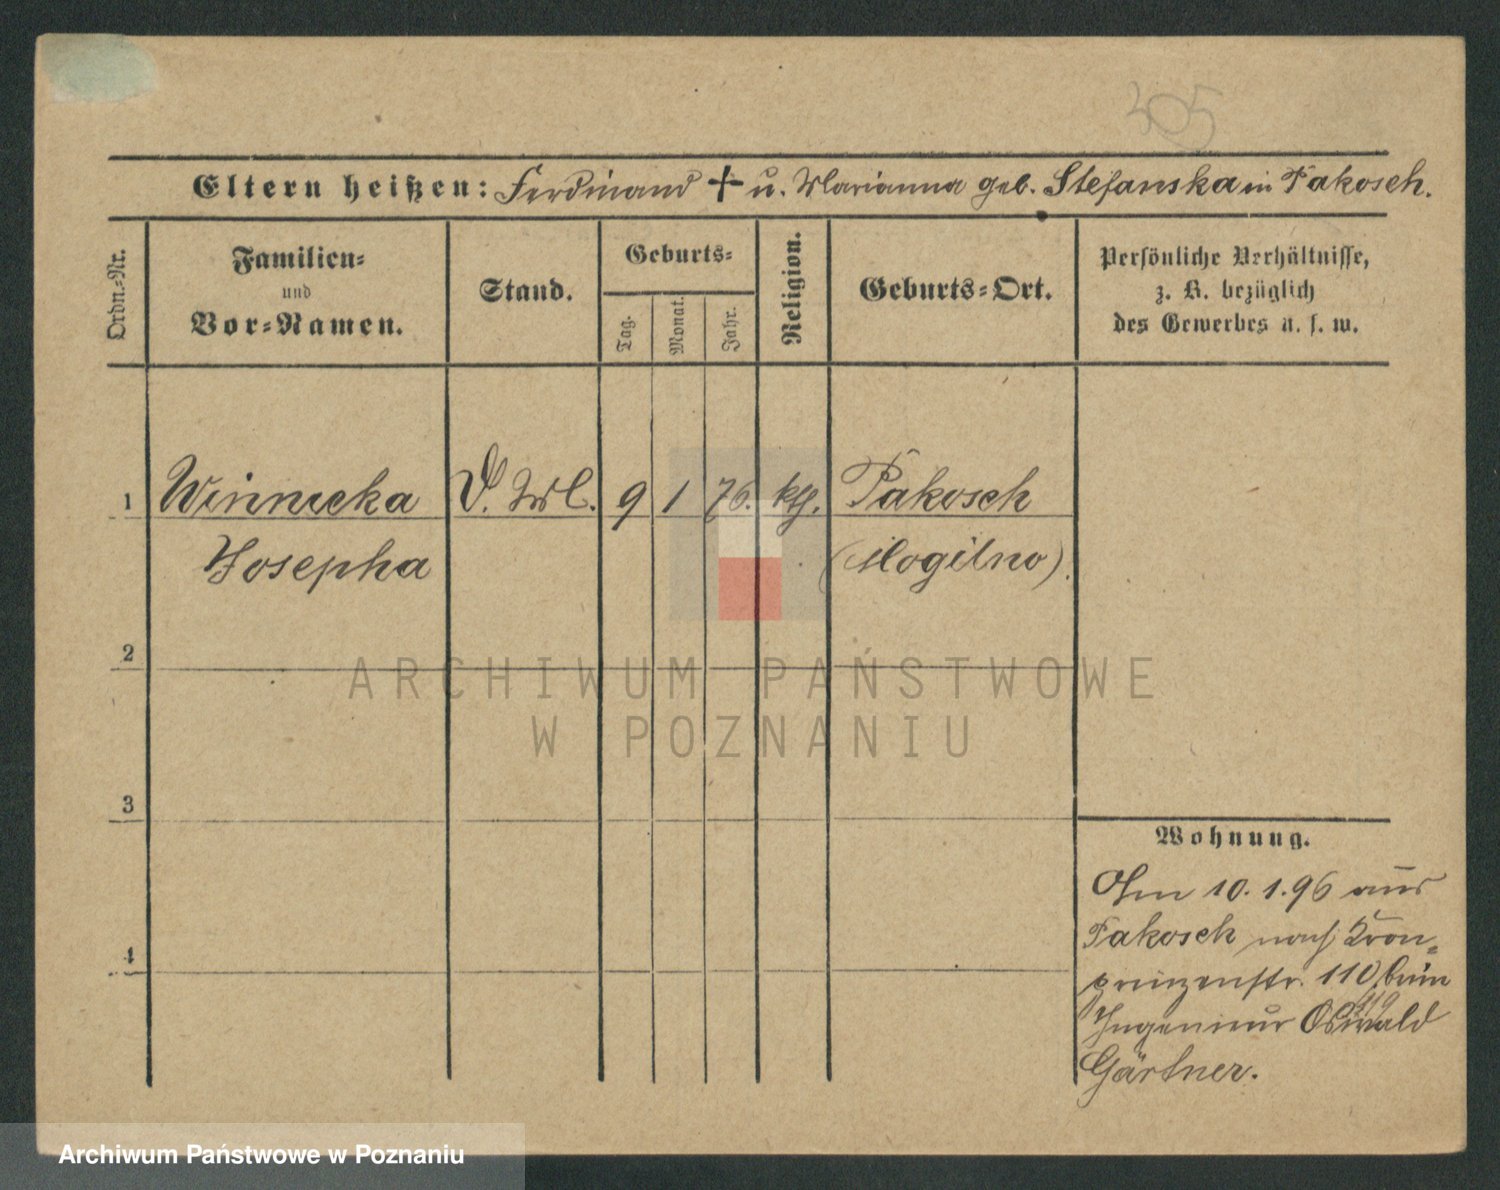 305
Eltern heißen: Ferdinand + u. Marianna geb. Stefanska in Pakosch.
Ordn.-Nr.
Familien-
und
Vor-Namen.
Stand.
Geburts-
Tag.
Monat.
Jahr.
Religion.
Geburts-Ort.
Persönliche Verhältnisse,
z. B. bezüglich
des Gewerbes u. s. w.
1 Winnicka D. M. 9 1 76. kth. Pakosch
Josepha (Mogilno).
2
3
4
Wohnung.
Am 10.1.96 aus
Pakosch nach Kron-
prinzenstr. 110 beim
119
Ingenieur Oswald
Gärtner.
ARCHIWUM PAŃSTWOWE
W POZNANIU
Archiwum Państwowe w Poznaniu